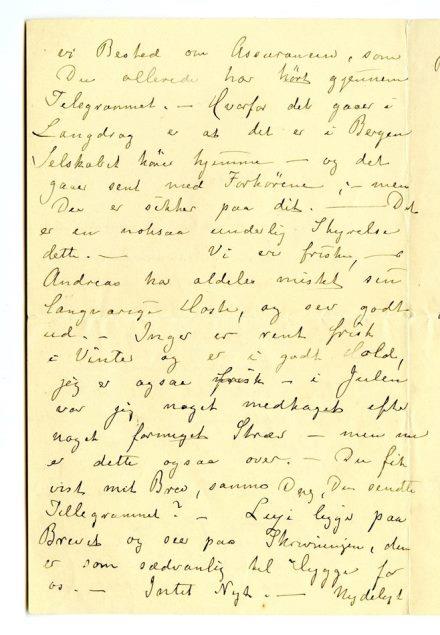 vi Besked om Assurancen, som
Du allerede har hört gjennem
Telegrammet. — Hvorfor det gaaer i
Langdrag er at det er i Bergen
Selskabet hörer hjemme — og det
gaaer sent med Forhörene ; — men
Du er sikker paa dit. — Det
er en noksaa underlig Skyrelse
dette. — Vi er friske, —
Andreas ha aldeles mistet sin
langvarige Hoste, og ser godt
ud. — Inger er rent frisk
i Vinter og er i godt Hold,
jeg er ogsaa frisk — i Julen
var jeg noget medtaget efter
noget formeget Stræv — men nu
er dette ogsaa over. — Du fik
vist mit Brev, samme Dag, Du sendte
Tellegrammet? — Lexi ligge paa
Brevet og see paa Skrivningen, den
er som sædvanlig til Hygge for
os. — Intet Nyt. — Nydeligt